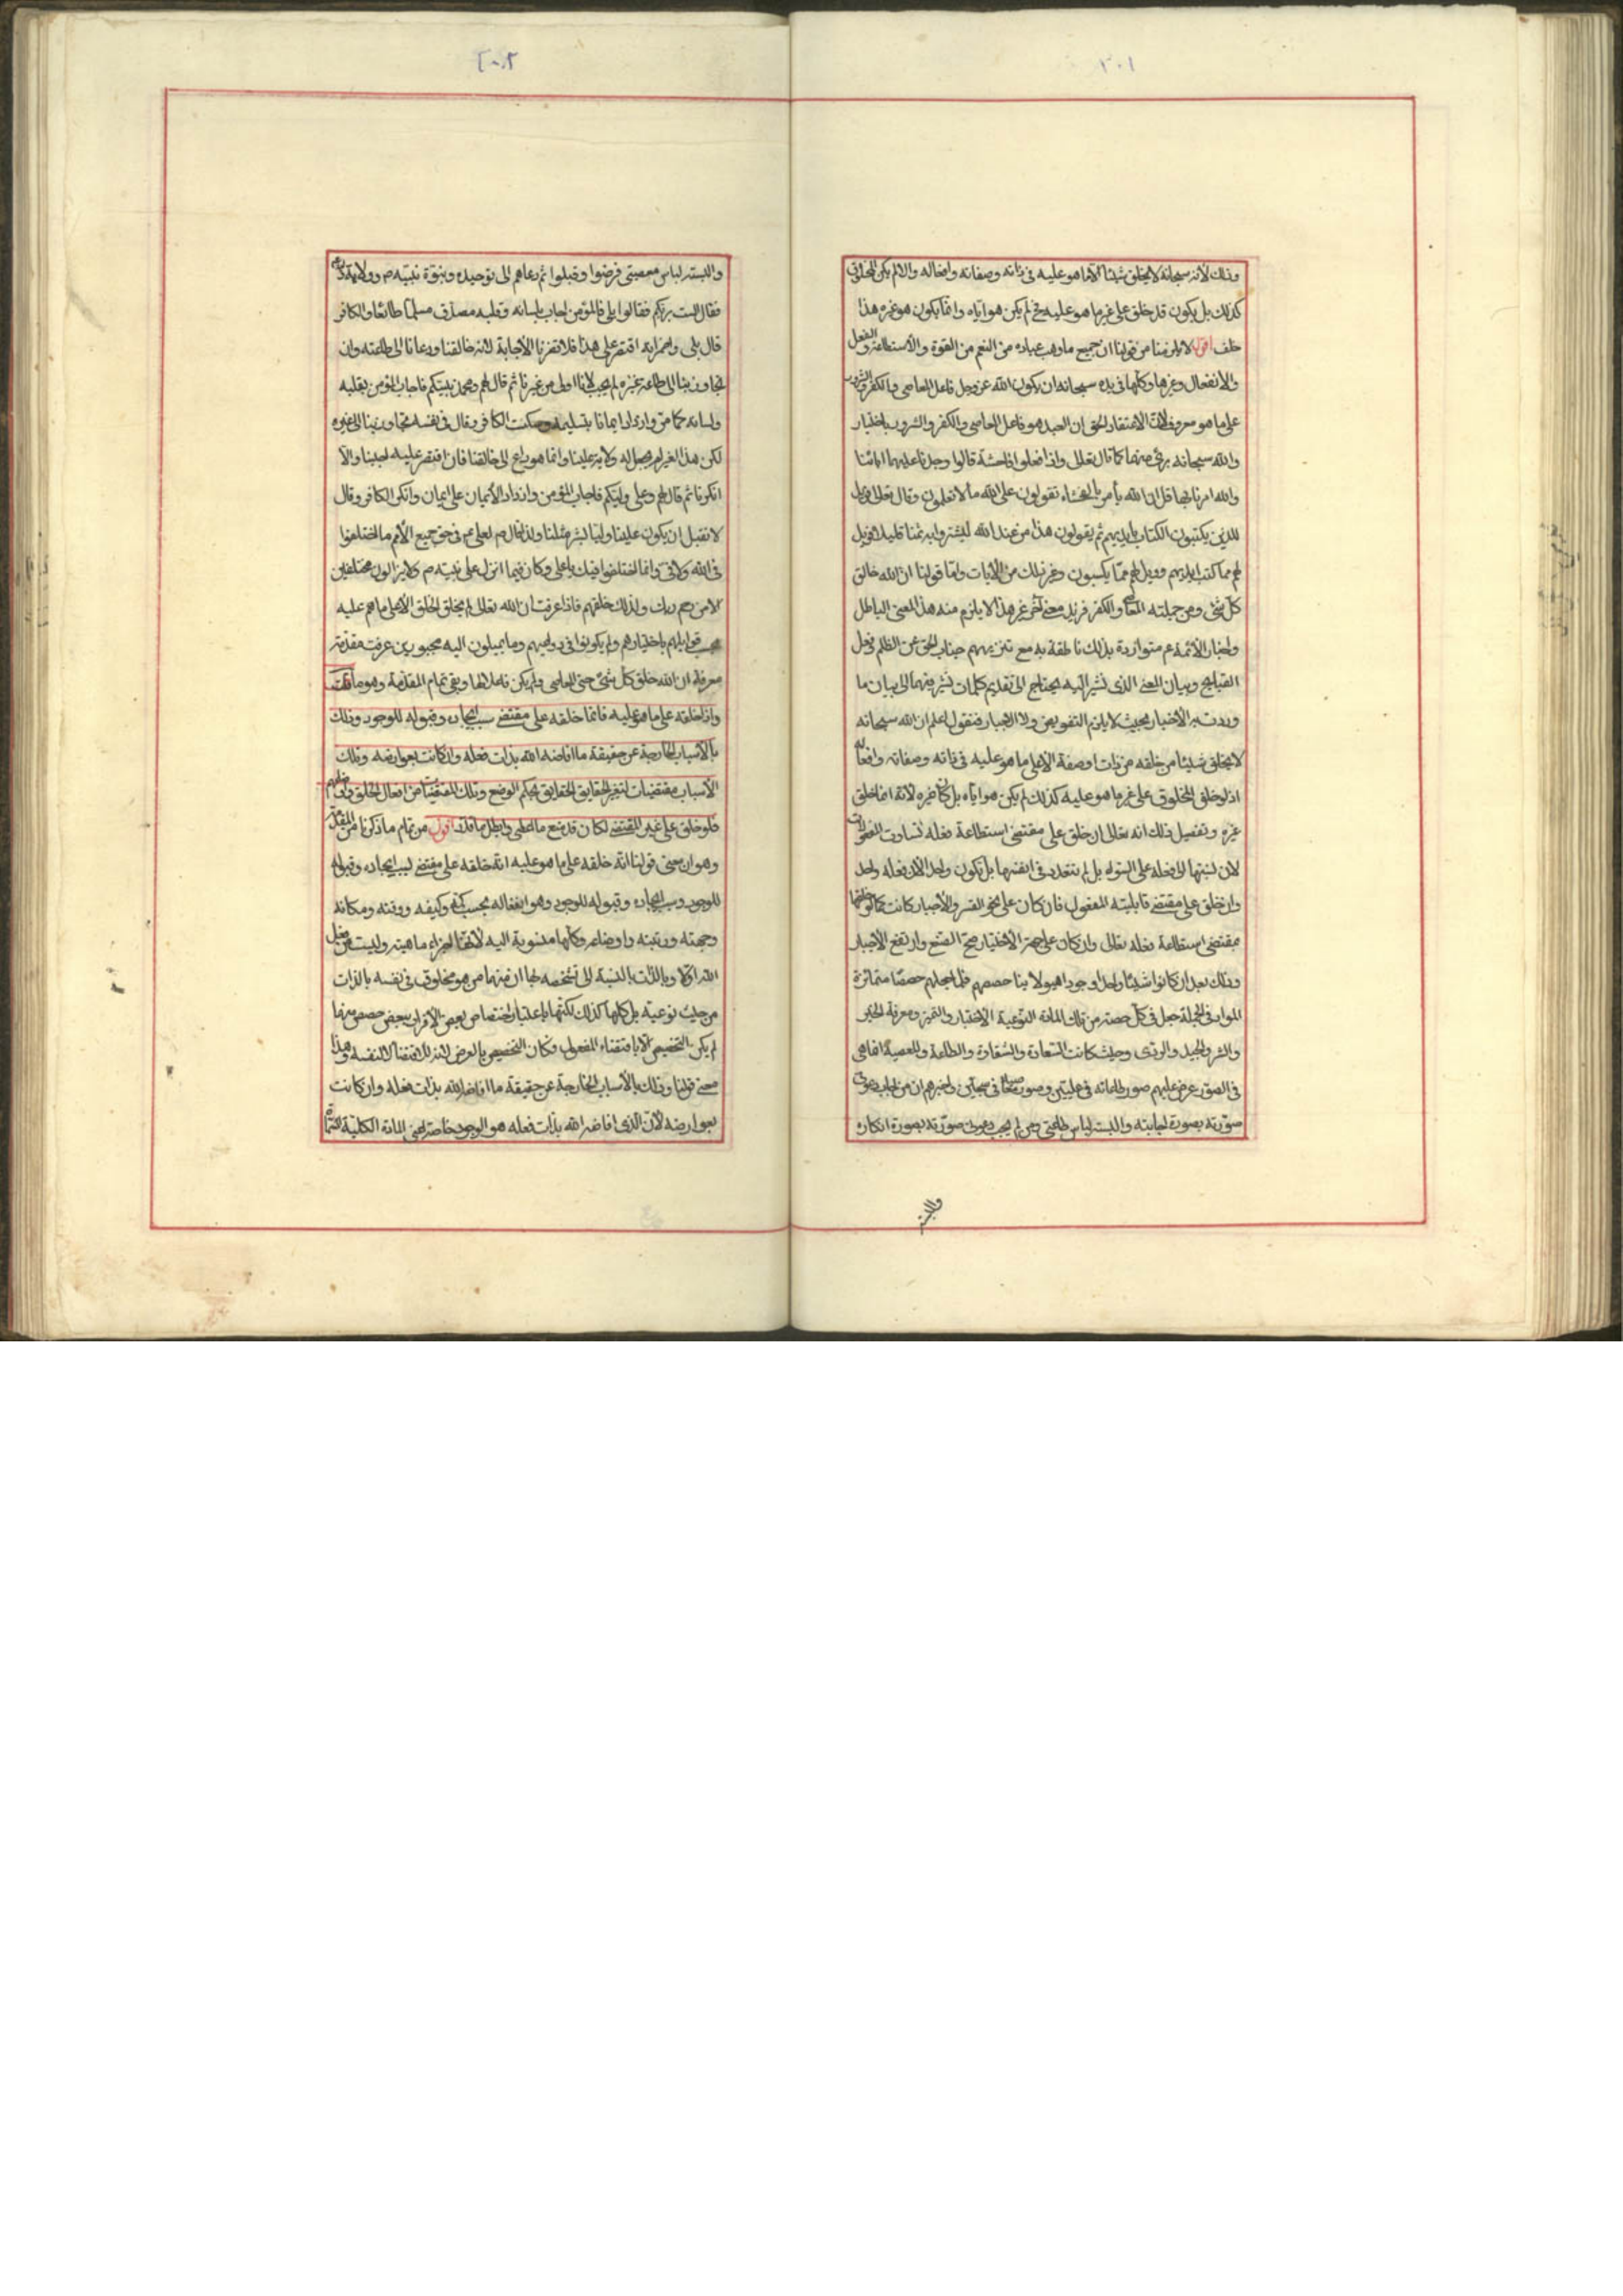 ٣٠١
وذلك لأنه سبحانه لا يخلق شيئا الا ما هو عليه فى ذاته وصفاته وافعاله والا لم يكن المخلوق
كذلك بل يكون قد خلق على غير ما هو عليه فح لم يكن هو اياه وانما يكون هو غيره هذا
خلف اقول لا يلزمنا من قولنا ان جميع ما وهب عباده من النعم من القوة والأستطاعة والفعل
والأنفعال وغيرها وكلها فى يده سبحانه ان يكون الله عز وجل فاعل المعاصى والكفر والشرور
على ما هو معروف لأن الاعتقاد الحق ان العبد هو فاعل المعاصى والكفر والشرور باختيار
والله سبحانه برىء منها كما قال تعالى واذا فعلوا فاحشة قالوا وجدنا عليها اباءنا
والله امرنا بها قل ان الله لا يأمر بالفحشاء تقولون على الله ما لا تعلمون وقال تعالى فويل
للذين يكتبون الكتاب بأيديهم ثم يقولون هذا من عند الله ليشتروا به ثمنا قليلا فويل
لهم مما كتبت ايديهم وويل لهم مما يكسبون وغير ذلك من الأيات واما قولنا ان الله خالق
كل شئ ومن جملته المعاصى والكفر فنريد معنى آخر غير هذا لا يلزم منه هذا المعنى الباطل
واخبار الأئمة ع متواردة بذلك ناطقة به مع تنزيههم جناب الحق عن الظلم وفعل
القبايح وبيان المعنى الذى نشير اليه يحتاج الى تقديم كلمات نشير فيها الى بيان ما
وردت به الأخبار بحيث لا يلزم التفويض ولا الأجبار فنقول اعلم ان الله سبحانه
لا يخلق شيئا من خلقه من ذات او صفة الا على ما هو عليه فى ذاته وصفاته وافعاله
اذ لو خلق المخلوق على غير ما هو عليه كذلك لم يكن هو اياه بل كان غيره لأنه انما خلق
غيره وتفصيل ذلك انه تعالى ان خلق على مقتضى استطاعة فعله تساوت المفعولات
لأن نسبتها الى فعله على السواء بل لم تتعدد فى انفسها بل تكون واحدا لأن فعله واحد
وان خلق على مقتضى قابلية المفعول فان كان على نحو القسر والأجبار كانت كما لو خلقها
بمقتضى استطاعة فعله تعالى وان كان على جهة الأختيار صح الصنع وارتفع الأجبار
وذلك بعد ان كانوا شيئا واحدا وجودا هيولانيا حصصهم فلما جعلهم حصصا متمايزة
المواد فى الجملة جعل فى كل حصة من تلك المادة النوعية الأختيار والتميز ومعرفة الخير
والشر والجيد والردى وحيث كانت السعادة والشقاوة والطاعة والمعصية انما هى
فى الصور عرض عليهم صور طاعاته فى عليين وصور معاصيه فى سجين واخبرهم ان من اجاب دعوتى
صورته بصورة اجابته والبسته لباس طاعتى ومن لم يجب دعوتى صورته بصورة انكاره
٣٠٢
والبسته لباس معصيتى فرضوا وقبلوا ثم دعاهم الى توحيده وبنوة نبيه ص وولاية
فقال الست بربكم فقالوا بلى فالمؤمن اجاب بلسانه وقلبه مصدق مسلما طائعا والكافر
قال بلى واضمر انه اقتصر على هذا فلا تضرنا الأجابة لأنه خالقنا ودعانا الى طاعته وان
تجاوز بنا الى طاعة غيره لم يجب لأنا اولى من غيرنا ثم قال لهم ومحمد نبيكم فاجاب المؤمن بقلبه
ولسانه كما مر وازداد ايمانا بتسليمه وسكت الكافر وقال فى نفسه تجاوز بنا الى غيره
لكن هذا الغير لم يجعل له ولاية علينا وانما هو داع الى خالقنا فان اقتصر عليه اجبنا والا
انكرنا ثم قال لهم وعلى وليكم فاجاب المؤمن وازداد الأيمان على ايمان وانكر الكافر وقال
لا نقبل ان يكون علينا وليا بشر مثلنا ولذا قال ص لعلى ع فى حق جميع الأمم ما اختلفوا
فى الله ولا فى وانما اختلفوا فيك يا على وكان فيما انزل على نبيه ص ولا يزالون مختلفين
الا من رحم ربك ولذلك خلقهم فاذا عرفت ان الله تعالى لم يخلق الخلق الا على ما هم عليه
قوابلهم باختيارهم ولم يكونوا فى دواعيهم وما يميلون اليه مجبورين عرفت مقدمة
معرفة ان الله خلق كل شئ حتى المعاصى ولم يكن فاعلا لها وبقى تمام المقدمة وهو ما قلت
واذا خلقه على ما هو عليه فانما خلقه على مقتضى سبب ايجاده وقبوله للوجود وذلك
بالأسباب الخارجة عن حقيقة ما افاضه الله بذات فعله وان كانت بعوارضه وتلك
الأسباب مقتضيات لتغير الحقايق الحقايق بحكم الوضع وتلك المقتضيات من افعال الخلق
فلو خلق على غير المقتضى لكان قد منع ما اعطى وابطل ما قدر اقول من تمام ما ذكرنا من المقدمة
وهو ان معنى قولنا انه خلقه على ما هو عليه انه خلقه على مقتضى سبب ايجاده وقبوله
للوجود وسبب ايجاده وقبوله للوجود وهو انفعاله بحسب كمه وكيفه ووقته ومكانه
وجهته ورتبته واوضاعه وكلها منسوبة اليه لأنها اجزاء ماهيته وليست من فعل
الله اولا وبالذات بالنسبة الى تشخصه بها ان منها من هو مخلوق فى نفسه بالذات
من حيث نوعيته بل كلها كذلك لكنها باعتبار اختصاص بعض الأفراد ببعض حصص منها
لم يكن التخصيص الا باقتضاء المفعول فكان التخصيص بالعرض لذلك الاقتضاء لا لنفسه وهذا
معنى قولنا وذلك بالأسباب الخارجة عن حقيقة ما افاضه الله بذات فعله وان كانت
بعوارضه لأن الذى افاضه الله بذات فعله هو الوجود خاصة اعنى المادة الكلية
والبسته